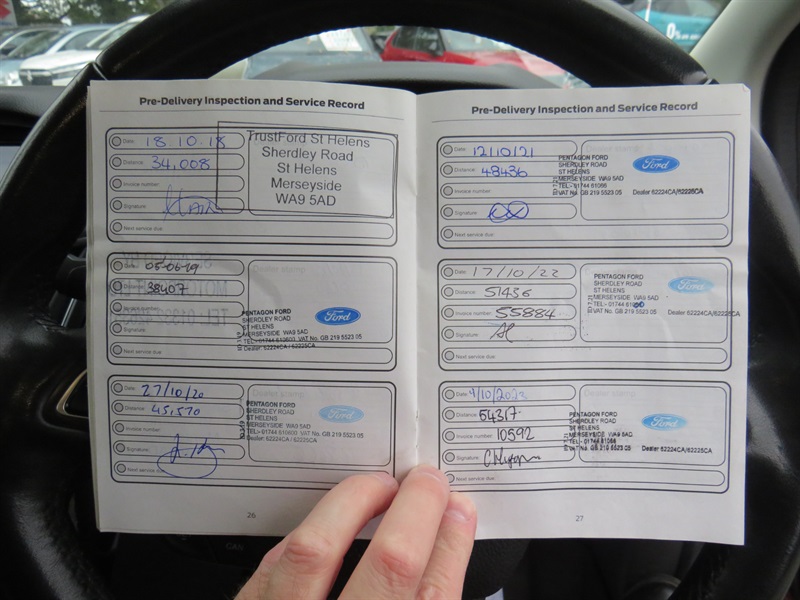 Pre-Delivery Inspection and Service Record
Date: 18.10.18
Distance: 34,008
Invoice number:
Signature:
Next service due:
TrustFord St Helens
Sherdley Road
St Helens
Merseyside
WA9 5AD
Date: 05-06-19
38407
Signature:
Next service due:
Dealer stamp:
PENTAGON FORD
SHERDLEY ROAD
ST HELENS
MERSEYSIDE WA9 5AD
TEL:- 01744 610600 VAT No. GB 219 5523 05
Dealer: 62224CA/62225CA
Ford
Date: 27/10/20
Distance: 45,570
Invoice number:
Signature:
Next service due:
Dealer stamp:
PENTAGON FORD
SHERDLEY ROAD
ST HELENS
MERSEYSIDE WA9 5AD
TEL:- 01744 610600 VAT No. GB 219 5523 05
Dealer: 62224CA/62225CA
Ford
26
Pre-Delivery Inspection and Service Record
Date: 12/10/21
Distance: 48436
Invoice number:
Signature:
Next service due:
PENTAGON FORD
SHERDLEY ROAD
ST HELENS
MERSEYSIDE WA9 5AD
VAT No. GB 219 5523 05
Dealer 62224CA/62225CA
Ford
Date: 17/10/22
Distance: 51436
Invoice number: 55884
Signature:
Next service due:
PENTAGON FORD
SHERDLEY ROAD
ST HELENS
MERSEYSIDE WA9 5AD
VAT No. GB 219 5523 05
Ford
Date: 4/10/2023
Distance: 54317
Invoice number: 10592
Signature:
Next service due:
PENTAGON FORD
SHERDLEY ROAD
ST HELENS
MERSEYSIDE WA9 5AD
VAT No. GB 219 5523 05
Dealer 62224CA/62225CA
Ford
27
CAN